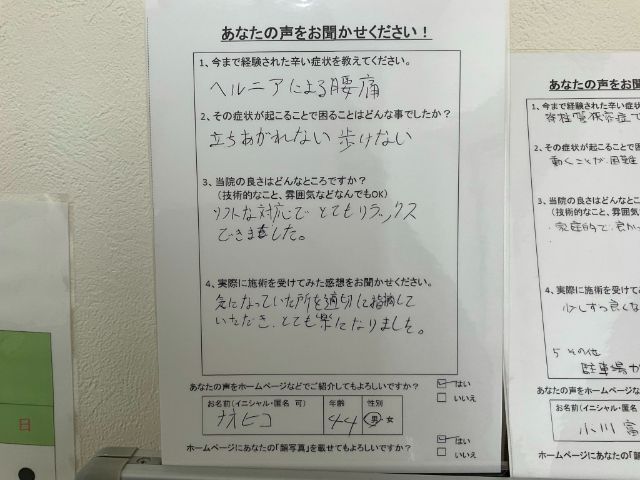 あなたの声をお聞かせください！
1、今まで経験された辛い症状を教えてください。
ヘルニアによる腰痛
2、その症状が起こることで困ることはどんな事でしたか？
立ちあがれない 歩けない
3、当院の良さはどんなところですか？
（技術的なこと、雰囲気などなんでもOK）
ソフトな対応でとてもリラックス
できました。
4、実際に施術を受けてみた感想をお聞かせください。
気になっていた所を適切に指摘して
いただき、とても楽になりました。
あなたの声をホームページなどでご紹介してもよろしいですか？
はい
いいえ
お名前（イニシャル・匿名 可） 年齢 性別
ナオヒコ 44 男・女
ホームページにあなたの「顔写真」を載せてもよろしいですか？
はい
いいえ
あなたの声をお聞
1、今まで経験された辛い症
脊柱管狭窄症で
2、その症状が起こることで困
動くことが困難
3、当院の良さはどんなとこ
（技術的なこと、雰囲気な
・家庭的で良か
4、実際に施術を受けてみ
少しずつ良くな
5 その他
駐車場が
あなたの声をホームページな
お名前（イニシャル・匿名
小川 富
ホームページにあなたの「顔
日